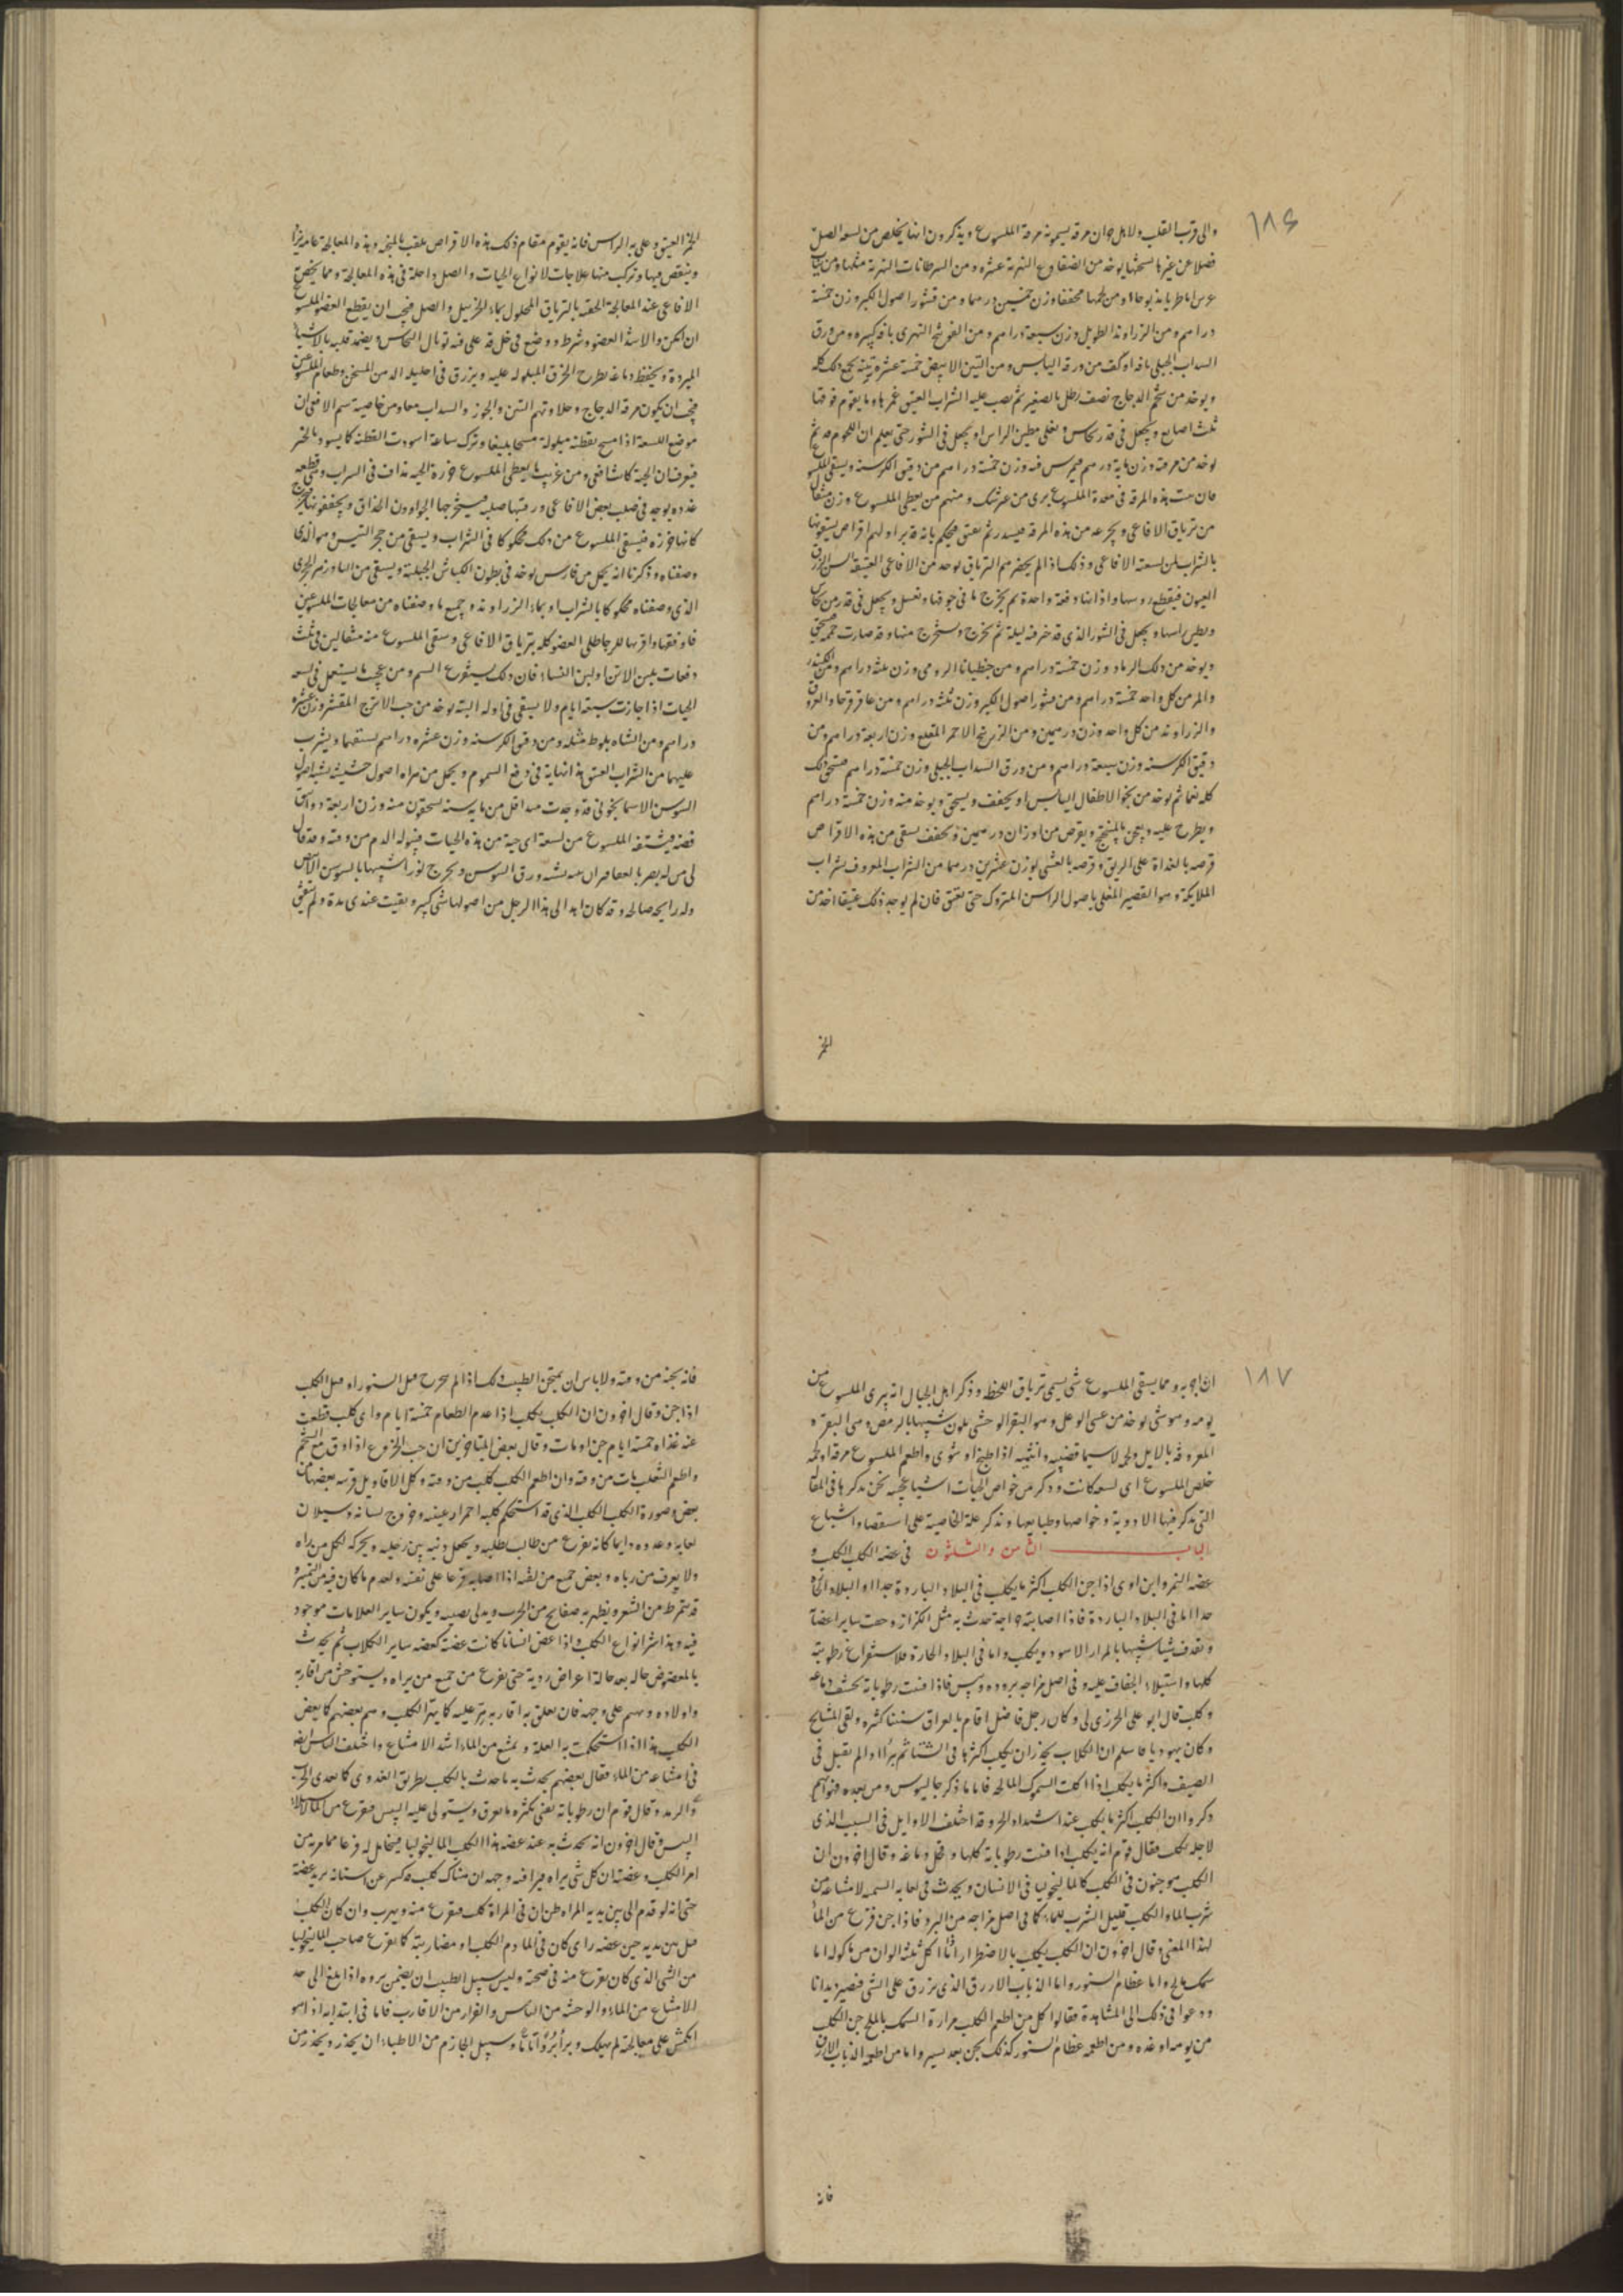 ١٨٦
والى قرب القلب ولاهل خوان مرقة يسمونه مرقة الملسوع ويذكرون انها يخلص من لسعه الصل
فضلا عن غيرها يوخذ من الضفادع النهرية عشره ومن السرطانات النهرية مثلها ومن
ومن لحمها مجففا وزن خمسين درهما ومن قشور اصول الكبر وزن خمسة
دراهم ومن الزراوند الطويل وزن سبعة دراهم ومن الفوتنج النهرى باقة كبيره ومن ورق
السداب الجبلى باقة او كف من ورقه اليابس ومن التين الابيض خمسة عشر تينة يجمع ذلك كله
ويوخذ من شحم الدجاج نصف رطل بالصغير ثم يصب عليه الشراب العتيق غمرها وما يقوم فوقها
ثلث اصابع ويجعل فى قدر نحاس ويغلى مطين الراس او يجعل فى التنور حتى يعلم ان اللحوم قد
يوخذ من مرقته وزن مايه درهم فيمرس فيه وزن خمسة دراهم من دقيق الكرسنه ويسقى
فان هذه المرقة فى معدة الملسوع برى من عرشك ومنهم من يعطى الملسوع وزن مثقال
من ترياق الافاعى ويجرعه من هذه المرقه ثم يعتق فيحكم بانه قد برا ولهم اقراص يسقونها
بالشراب لمن لسعته الافاعى وذلك اذا لم يحضرهم الترياق يوخذ من الافاعى العتيقة
العيون فيقطع روسها واذنابها دفعة واحدة ثم يخرج ما فى جوفها وتغسل ويجعل فى قدر من نحاس
ويطين راسها ويجعل فى التنور الذى قد خبز فيه ليلة ثم يخرج ويستخرج منها وقد صارت
ويوخذ من ذلك الرماد وزن خمسة دراهم ومن جنطيانا الرومى وزن ثلثه دراهم ومن الكندر
والمر من كل واحد خمسة دراهم ومن قشور اصول الكبر وزن ثلثه دراهم ومن عاقرقرحا
والزراوند من كل واحد وزن درهمين ومن الزرنيخ الاحمر وزن اربعة دراهم ومن
دقيق الكرسنه وزن سبعة دراهم ومن ورق السداب الجبلى وزن خمسة دراهم فيسحق ذلك
كله نعما ثم يوخذ من نجو الاطفال اليابس او يجفف ويسحق ويوخذ منه وزن خمسة دراهم
ويطرح عليه ويعجن ويقرص من اوزان درهمين ويجفف يسقى من هذه الاقراص
قرصه بالغداة على الريق وقرصه بالعشى بوزن عشرين درهما من الشراب المعروف بشراب
الملايكة وهو القصير المغلى باصول الراسن المتروك حتى يعتق فان لم يوجد ذلك عتيقا اخذ من
الخمر
الخمر العتيق وعلى به الراسن فانه يقوم مقام ذلك هذه الاقراص وهذه المعالجة عامة
وينقص منها وتركب منها علاجات لانواع الحيات والصل داخلة فى هذه المعالجة ومما يختص
الافاعى عند المعالجة الحقنه بالترياق المحلول بماء والصل فيجب ان يقطع العضو الملسوع
ان امكن والا شد العضو وشرط ووضع فى خل قد على فيه توبال النحاس ويضمد قلبه بالاشياء
المبردة ويحفظ دماغه بطرح الخرق المبلوله عليه ويزرق فى احليله الدهن المسخن وطعام
فيجب ان يكون مرقة الدجاج وحلاوتهم التين والجوز والسداب معا ومن خاصية سم الافعى ان
موضع اللسعة اذا مسح بقطنة مبلولة مسحا بليغا وترك ساعة اسودت القطنة كما يسود بالحبر
فيعرف ان الحية كانت افعى ومن غريب ما يعطى الملسوع خرزة الحيه يداف فى الشراب وهى قطعه
غدده يوجد فى صلب بعض الافاعى ورقبتها صلبه فيستخرجها الحواوون الحذاق ويجففونها
كانها خرزه فيسقى الملسوع من ذلك محكوكا فى الشراب ويسقى من حجر التيس وهو الذى
وصفناه وذكرنا انه يحمل من فارس يوخذ فى بطون الكباش الجبلية ويسقى من البادزهر الحجرى
الذى وصفناه محكوكا بالشراب او بماء الزراوند وجميع ما وصفناه من معالجات الملسوعين
فاوفقها واقربها للبرء طلى العضو كله بترياق الافاعى وسقى الملسوع منه مثقالين فى ثلث
دفعات بلبن الاتن او لبن النساء فان ذلك يستفرغ السم ومن عجيب ما يستعمل فى لسعه
الحيات اذا جازت سبعة ايام ولا يسقى فى اوله البته يوخذ من حب الاترج المقشر وزن عشرة
دراهم ومن الشاه بلوط مثله ومن دقيق الكرسنه وزن عشره دراهم يستفها ويشرب
عليها من الشراب العتيق هذا نهاية فى دفع السموم ويحمل من اصول حشيشة يشبه اصول
السوسن الاسمانجونى قد وجدت منذ اقل من مايه سنه يسحقون منه وزن اربعة دوانق
فضه فيستفه الملسوع من لسعة اى حية من هذه الحيات فيبول الدم من وقته وقد قال
لى من له بصر بالعقاقير ان يشبه ورق السوسن ويخرج نورا شبيها بالسوسن الابيض
وله رايحه صالحة وقد كان اهدى الى هذا الرجل من اصولها شى كبير وبقيت عندى مدة ولم يتفق
١٨٧
ان اجربه ومما يسقى الملسوع شى يسمى ترياق اللحظه وذكر اهل الجبال انه يبرى الملسوع من
يومه وهو شى يوخذ من عينى الوعل وهو البقر الوحشى يكون شبيها بالرمص وهى البقره
المعروفة بالايل ولحمه لاسيما قضيبه وانثييه اذا طبخ او شوى واطعم الملسوع مرقه او لحمه
خلص الملسوع اى لسعه كانت وذكر من خواص الحيات اشيا عجيبه نحن نذكرها فى المقالة
التى نذكر فيها الادوية وخواصها وطبايعها ونذكر علة الخاصية على استقصاء واشباع
الباب الثامن والثلثون فى عضه الكلب الكلب و
عضه النمر وابن اوى اذا جن الكلب اكثر ما يكلب فى البلاد الباردة جدا او البلاد الحاره
جدا اما فى البلاد الباردة فاذا اصابته حدث به مثل الكزاز وجفت ساير اعضائه
وتقذف شيا شبيها بالمرار الاسود ويكلب واما فى البلاد الحارة فلاستفراغ رطوبته
كلها واستيلاء الجفاف عليه وفى اصل مزاجه بروده ويبس فاذا فنيت رطوباته يجف دماغه
وكلب قال ابو على الحرزى لى وكان رجل فاضل اقام بالعراق سنينا كثيره ولقى المشايخ
وكان يهوديا فاسلم ان الكلاب يكلب اكثرها فى الشتا ثم يقبل فى
الصيف واكثر ما يكلب اذا اكلت السموك المالحه فاما ما ذكر جالينوس ومن بعده
ذكروا ان الكلب اكثر ما يكلب عند اشتداد الحر وقد اختلف الاوايل فى السبب الذى
لاجله يكلب فقال قوم انه يكلب اذا فنيت رطوباته كلها وقحل دماغه وقال اخرون ان
الكلب هو جنون فى الكلب كالمالنخوليا فى الانسان ويحدث فى لعابه السميه لامتناعه من
شرب الماء والكلب قليل الشرب للماء كما فى اصل مزاجه من البرد فاذا جن فزع من الماء
لهذا المعنى وقال اخرون ان الكلب يكلب بالاضطرار اذا اكل ثلثه الوان من ماكوله اما
سمك مالح واما عظام السنور واما الذباب الازرق الذى يزرق على الشى فيصير ديدانا
ودعوا فى ذلك الى المشاهدة فقالوا كل من اطعم الكلب مرارة السمك بالملح جن الكلب
من يومه او غده ومن اطعمه عظام السنور كذلك يجن بعد يسير واما من اطعمه الذباب الازرق
فانه
فانه يجنه من وقته ولا باس ان يمتحن الطبيب ذلك اذا لم
اذا جن وقال اخرون ان الكلب يكلب اذا عدم الطعام خمسة ايام واى كلب قطعت
عنه غذاه خمسة ايام جن او مات وقال بعض المتاخرين ان حب الخروع اذا دق مع الشحم
واطعم الثعلب مات من وقته وان اطعم الكلب كلب من وقته وكل الاقاويل قريبه بعضها من
بعض وصورة الكلب الكلب الذى قد استحكم كلبه احمرار عينه وخروج لسانه وسيلان
لعابه وعدوه دايما كانه يفزع من طالب يطلبه ويجعل ذنبه بين رجليه ويحركه لكل من يراه
ولا يعرف من رباه ويعض جميع من لقيه اذا اصابه فزعا على نفسه ولعدم ما كان فيه من التمييز و
قد يتمرط من الشعر ويظهر به صفايح من الجرب ويكون ساير العلامات موجود
فيه وهذا شر انواع الكلب واذا عض انسانا كانت عضته كعضه ساير الكلاب ثم يحدث
بالمعضوض حاله بعد حالة اعراض رديه حتى يفزع من جميع من يراه ويستوحش من اقاربه
واولاده ويهيم على وجهه فان تعلق به اقاربه كما يهر الكلب وهم بعضهم كما يعض
الكلب هذا اذا استحكمت به العلة ويمتنع من الماء اشد الامتناع واختلف الناس ايضا
فى امتناعه من الماء فقال بعضهم يحدث به ما حدث بالكلب بطريق العدوى كما يعدى الجرب
والرمد وقال قوم ان رطوباته تفنى بكثره ما يعرق ويستولى عليه اليبس فيفزع من الماء
اليبس وقال اخرون انه يحدث به عند عضه هذا الكلب المالنخوليا فيتخايل له فزعا مما مر به من
امر الكلب وعضته ان كل شى يراه فيرا فيه وجهه ان هناك كلب يكشر عن اسنانه يريد عضه
حتى انه لو قدم الى بين يديه المراه ظن ان فى المراة كلب فيفزع منه ويهرب وان كان الكلب
بين يديه حين عضه راى كان فى الماء دم الكلب او مضاربته كما يفزع صاحب المالنخوليا
من الشى الذى كان يفزع منه فى صحته وليس سبيل الطبيب ان يضمن بروه اذا بلغ الى حد
الامتناع من الماء والوحشه من الناس والفرار من الاقارب فاما فى ابتدايه اذا هو
انكمش على معالجته لم يهلك وبرا برءا تاما وسبيل الحازم من الاطباء ان يحذر ويحذر من